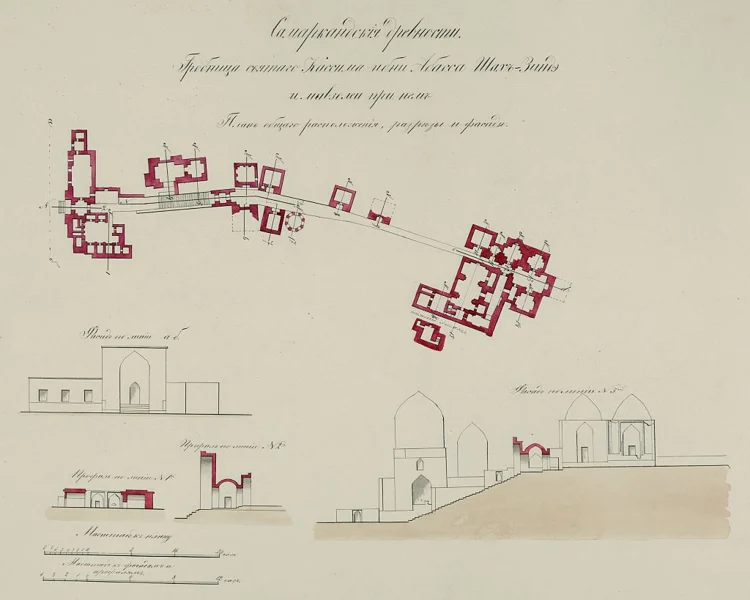 Самаркандскія древности.
Гробница святаго Кассима ибни Абасса Шахъ-Зинде
и мавзолеи при немъ
Планъ общаго расположенія, разрѣзы и фасады.
Фасадъ по линіи а б.
Фасадъ по линіи N 5
Профиль по линіи N 2
Профиль по линіи N 1
Масштабъ къ плану
Масштабъ къ фасадамъ и
профилямъ